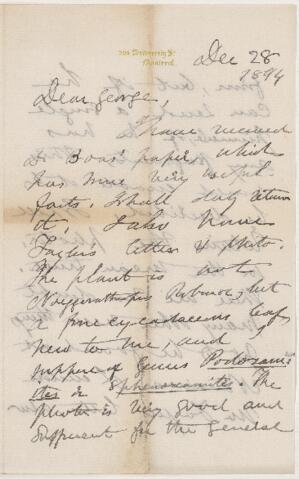 Dec 28
1894
Dear George,
I have received
Dr Boas' paper, which
has some very useful
facts. I shall duly return
it, I also have
letter & photo.
The plant is not
but
a pure cycadaceous leaf
new to me, and I
suppose of Genus Podozami
tes or Sphenozamites. The
photo is very good and
sufficient for the general